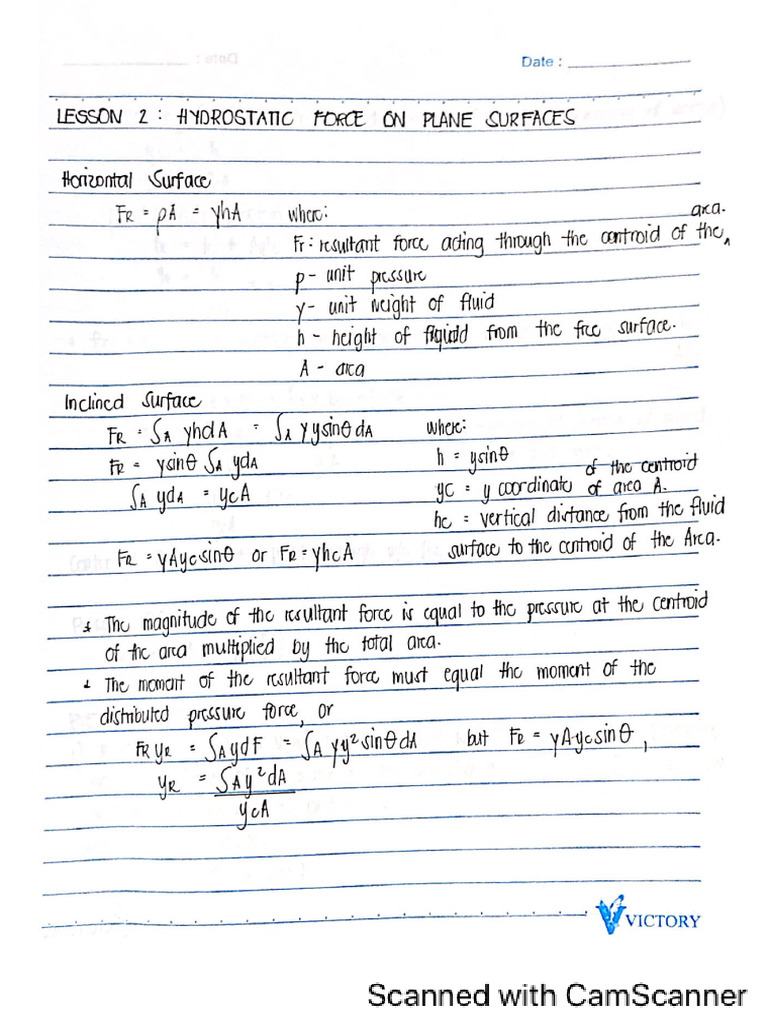 Date :
LESSON 2 : HYDROSTATIC FORCE ON PLANE SURFACES
Horizontal Surface
FR = pA = γhA where: area.
Fr : resultant force acting through the centroid of the ^
p - unit pressure
γ - unit weight of fluid
h - height of liquid from the free surface.
A - area
Inclined Surface
FR = ∫A γhdA = ∫A γysinθdA where:
FR = γsinθ ∫A ydA h = ysinθ
∫A ydA = ycA of the centroid
yc = y coordinate of area A.
hc = vertical distance from the fluid
FR = γAycsinθ or FR = γhcA surface to the centroid of the Area.
* The magnitude of the resultant force is equal to the pressure at the centroid
of the area multiplied by the total area.
* The moment of the resultant force must equal the moment of the
distributed pressure force, or
FRyR = ∫AydF = ∫A γy²sinθdA but FR = γAycsinθ,
yR = ∫Ay²dA
ycA
VICTORY
Scanned with CamScanner